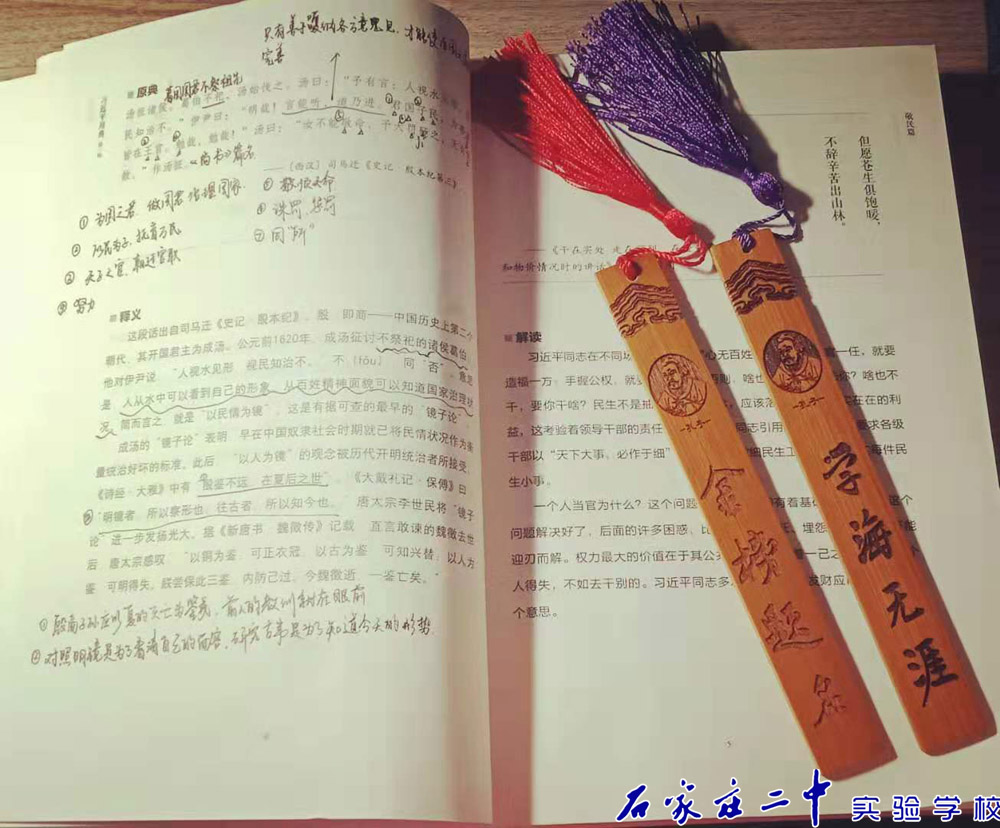 只有善于吸纳各方意见，才能
完善
原典
葛国国君不祭祖先
汤征诸侯。葛伯不祀，汤始伐之。汤曰：“予有言：人视水见形，视
民知治不。”伊尹曰：“明哉！言能听，道乃进。君国子民，为善
皆在王官。勉哉，勉哉！”汤曰：“汝不能敬命，予大罚殛之，无有
赦。”作汤征。《尚书》篇名
——（西汉）司马迁《史记·殷本纪第三》
① 为国之君 做国君 治理国家
② 以民为子，抚育万民
③ 天子之官，朝廷官职
④ 努力
⑤ 敬顺天命
⑥ 诛罚、惩罚
释义
这段话出自司马迁《史记·殷本纪》。殷，即商——中国历史上第二个
朝代，其开国君主为成汤。公元前1820年，成汤征讨不祭祀的诸侯葛伯，
他对伊尹说：“人视水见形，视民知治不。”不（fǒu），同“否”。意思
是，人从水中可以看到自己的形象，从百姓精神面貌可以知道国家治理状
况。简而言之，就是“以民情为镜”，这是有据可查的最早的“镜子论”。
成汤的“镜子论”表明，早在中国奴隶社会时期就已将民情状况作为衡
量统治好坏的标准。此后，“以人为镜”的观念被历代开明统治者所接受。
《诗经·大雅》中有“殷鉴不远，在夏后之世”。《大戴礼记·保傅》曰：
“明镜者，所以察形也；往古者，所以知今也。”唐太宗李世民将“镜子
论”进一步发扬光大。据《新唐书·魏徵传》记载，直言敢谏的魏徵去世
后，唐太宗感叹：“以铜为鉴，可正衣冠；以古为鉴，可知兴替；以人为
鉴，可明得失。朕尝保此三鉴，内防己过。今魏徵逝，一鉴亡矣。”
① 殷商子孙应以夏的灭亡为鉴戒，前人的教训就在眼前
② 对照明镜是为了看清自己的面容，研究古事是为了知道今天的形势.
敬民篇
但愿苍生俱饱暖，
不辞辛苦出山林。
——《干在实处 走在
和物价情况时的讲话》
解读
习近平同志在不同场 “心无百姓 官一任，就要
造福一方；手握公权，就 则，啥也 你？啥也不
干，要你干啥？民生不是 ，应该 实在在的利
益，这考验着领导干部的责任 同志引用 要求各级
干部以“天下大事，必作于细” 细民生工 每件民
生小事。
一个人当官为什么？这个问题 有着基 这个
问题解决好了，后面的许多困惑，比 埋怨 能
迎刃而解。权力最大的价值在于其公 一己之 人
人得失，不如去干别的。习近平同志多 发财应
个意思。
5
孔子
金榜题名
孔子
学海无涯
石家庄二中 实验学校